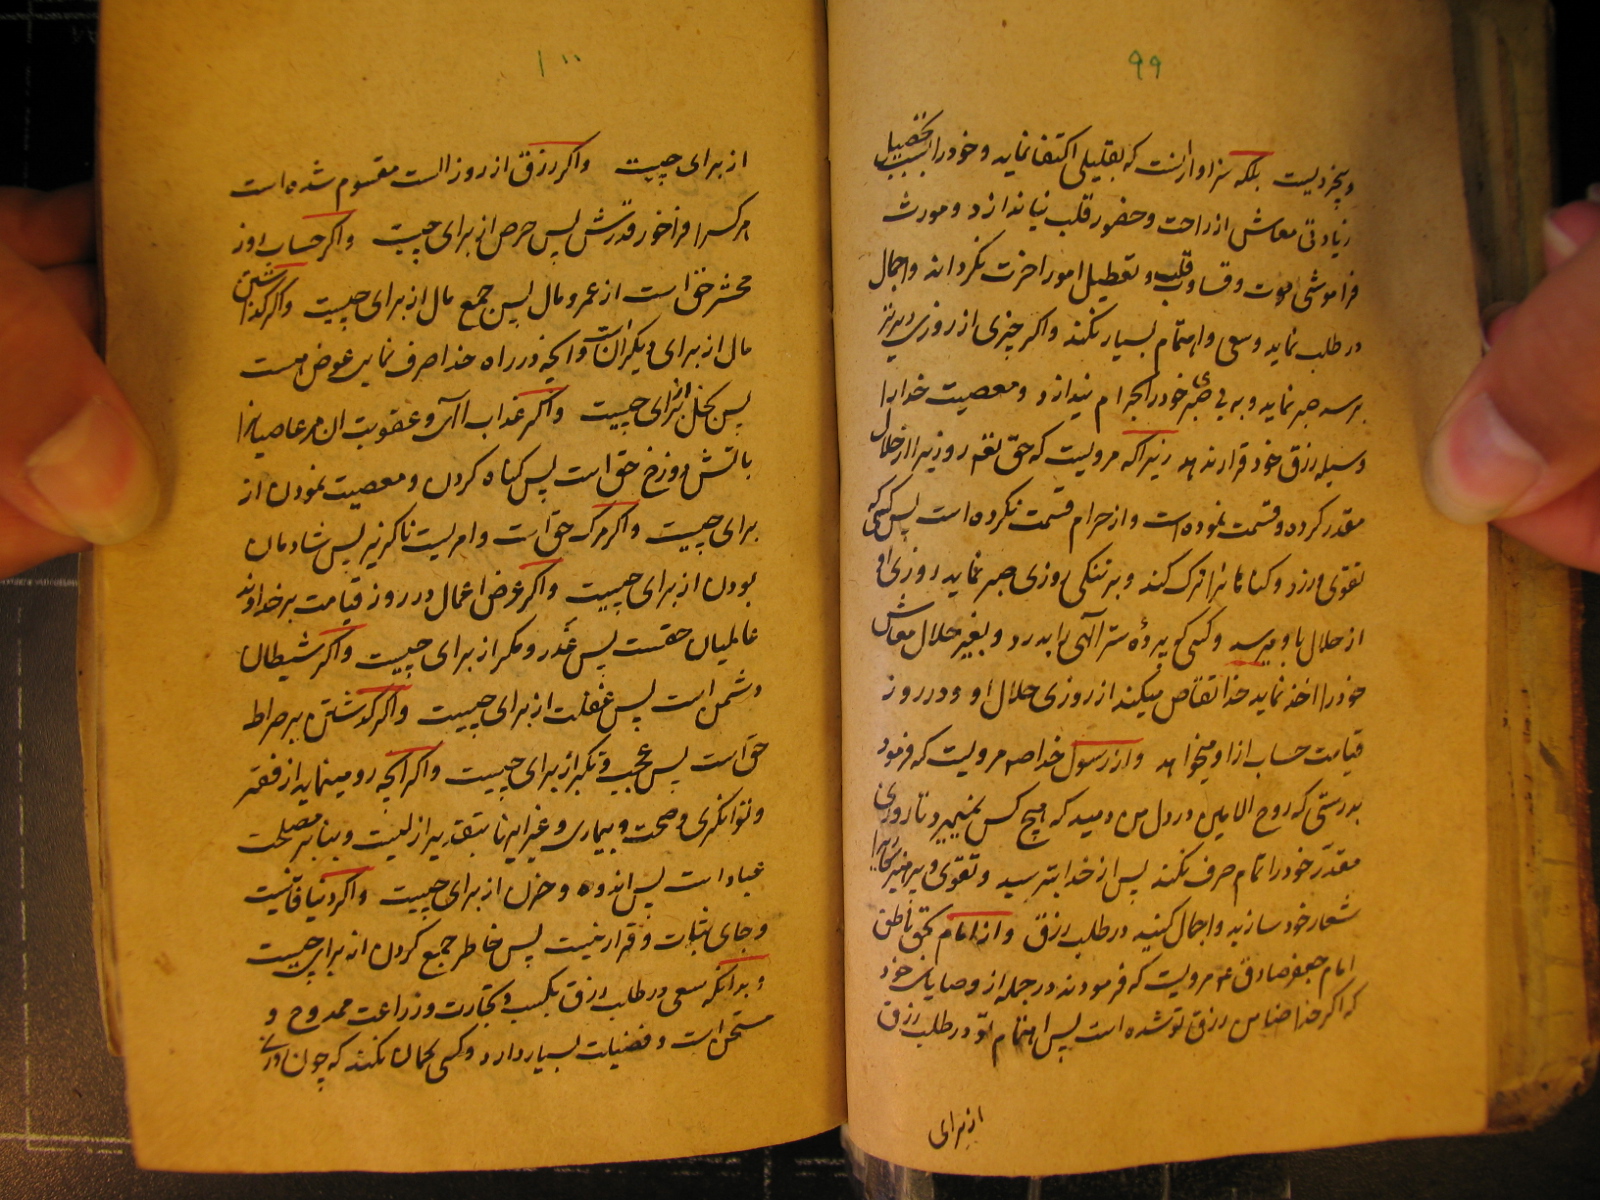 ۹۹
و بیخردیست بلکه سزاوار انست که بقلیلی اکتفا نماید و خود را بسبب تحصیل
زیادتی معاش از راحت و حضور قلب نیاندازد و مورث
فراموشی موت و قساوت قلب و تعطیل امور اخرت نکرداند و اجمال
در طلب نماید و سعی و اهتمام بسیار نکند و اکر چیزی از روزی دیرتر
برسد صبر نماید و به بی صبری خود را بحرام نیندازد و معصیت خدا را
وسیله رزق خود قرار ندهد زیراکه مرویست که حق تعم روزیرا از حلال
مقدر کرده و قسمت نموده است و از حرام قسمت نکرده است پس کسی که
تقوی ورزد و کناهانرا ترک کند و بر تنکی روزی صبر نماید روزی او
از حلال باو میرسد و کسی که پردهٔ ستر الهی را بدرد و بغیر حلال معاش
خود را اخذ نماید خدا تقاص میکند از روزی حلال او و در روز
قیامت حساب از او میخواهد و از رسول خدا صم مرویست که فرمود
بدرستی که روح الامین در دل من دمید که هیچ کس نمیمیرد تا روزی
مقدر خود را تمام صرف نکند پس از خدا بترسید و تقوی و پرهیزکاریرا
شعار خود سازید و اجمال کنید در طلب رزق و از امام بحق ناطق
امام جعفر صادق ع مرویست که فرمودند در جمله از وصایای خود
که اکر خدا ضامن رزق تو شده است پس اهتمام تو در طلب رزق
از برای
۱۰۰
از برای چیست واکر رزق از روز الست مقسوم شده است
هرکسرا فراخور قدرش پس حرص از برای چیست واکر حساب روز
محشر حق است از عمر و مال پس جمع مال از برای چیست واکر کذاشتن
مال از برای دیکرانست و انچه در راه خدا صرف نماید عوض هست
پس بخل از برای چیست واکر عذاب الهی و عقوبت ان مر عاصیانرا
باتش دوزخ حق است پس کناه کردن و معصیت نمودن از
برای چیست واکر مرک حق است و امریست ناکزیر پس شادمان
بودن از برای چیست واکر عرض اعمال در روز قیامت بر خداوند
عالمیان حقست پس غدر و مکر از برای چیست واکر شیطان
دشمن است پس غفلت از برای چیست واکر کذشتن بر صراط
حق است پس عجب و تکبر از برای چیست واکر انچه رو مینماید از فقر
و توانکری و صحت و بیماری و غیر اینها بتقدیر ازلیست و بنابر مصلحت
عباد است پس اندوه و حزن از برای چیست واکر دنیا فانیست
و جای ثبات و قرار نیست پس خاطر جمع کردن از برای چیست
و بدانکه سعی در طلب رزق بکسب و تجارت و زراعت ممدوح و
مستحسن است و فضیلت بسیار دارد و کسی کمان نکند که چون